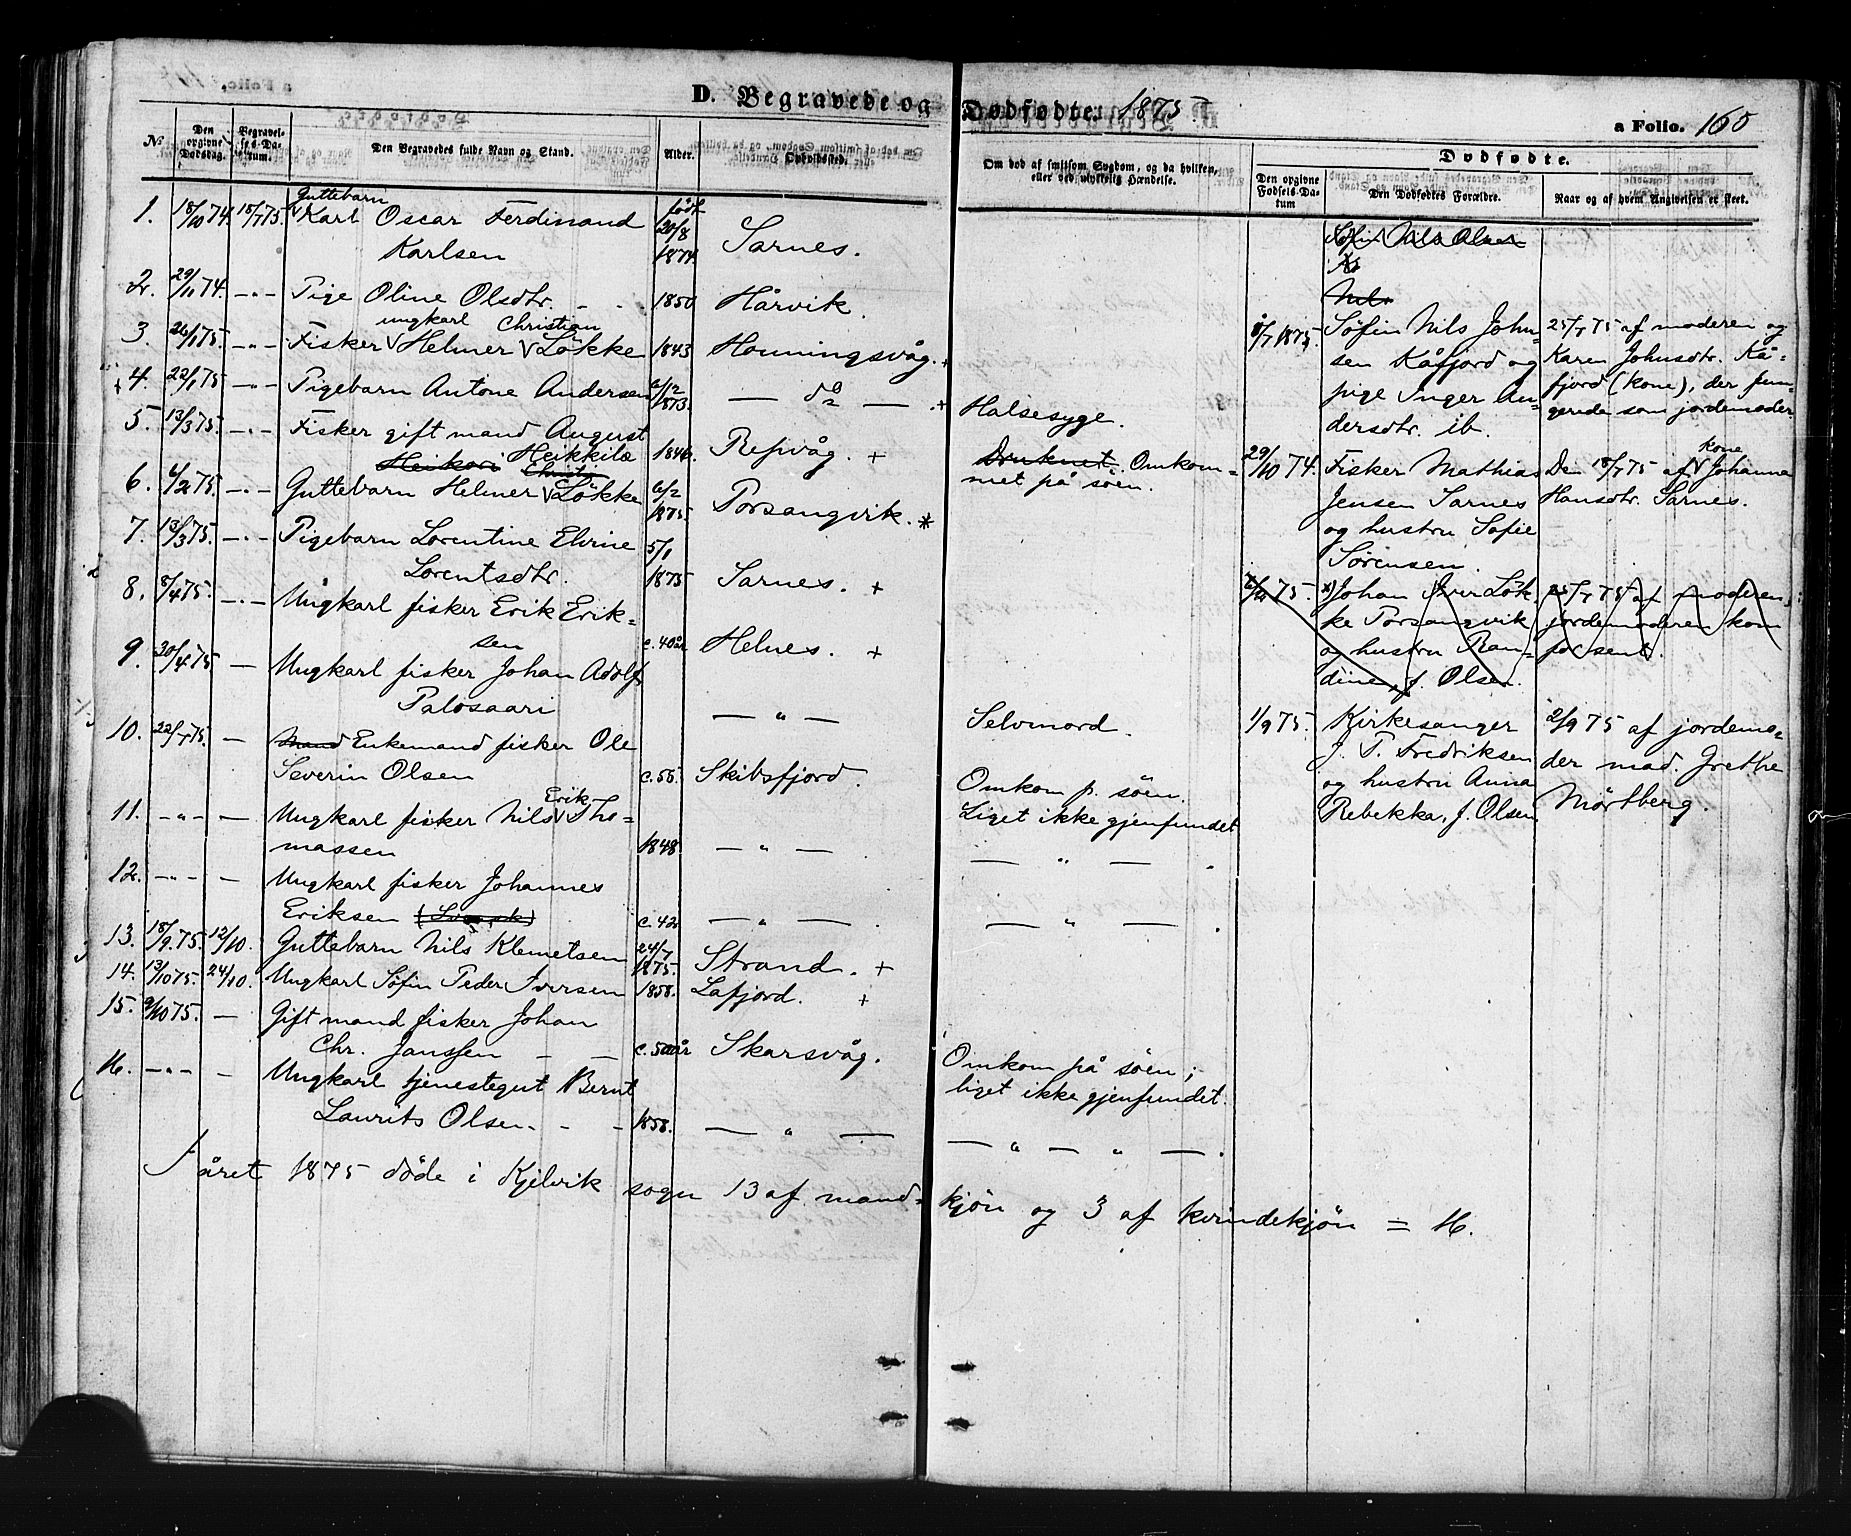 D. Begravede og Dødfødte. 1875
a Folio. 160
№
Den opgivne Dødsdag.
Begravelses-Datum.
Den Begravedes fulde Navn og Stand.
Alder.
Opholdssted.
Om død af smitsom Sygdom, og da hvilken, eller ved ulykkelig Hændelse.
Dødfødte.
Den opgivne Fødsels-Datum
Den Dødfødtes Forældre.
Naar og af hvem Angivelsen er skeet.
1. 18/10 74. 18/7 75. Guttebarn Karl Oscar Ferdinand født 20/8 1874. Sarnes.
Karlsen
2. 29/11 74. —"— Pige Oline Olsdtr. 1850 Hårvik.
ungkarl Christian
3. 26/1 75. —"— Fisker Helmer Løkke 1843 Honningsvåg. +
4. 22/1 75. —"— Pigebarn Antone Andersen 6/12 1873. — do — + Halsesyge.
5. 13/3 75. —"— Fisker gift mand August
Heikkilæ 1846. Repvåg. + Druknet. Omkom-
met på søen.
6. 6/2 75. —"— Guttebarn Helmer Christia Løkke 6/2 1875. Porsangvik. *
7. 13/3 75. —"— Pigebarn Lorentine Elvine 5/1
Lorentsdtr. 1875 Sarnes. +
8. 8/4 75. —"— Ungkarl fisker Erik Erik-
sen c. 40 år Helnes. +
9. 30/4 75 — Ungkarl fisker Johan Adolf
Palosaari — " — Selvmord.
10. 22/7 75. — Mand Enkemand fisker Ole
Severin Olsen c. 55. Skibsfjord. Omkom p. søen.
Liget ikke gjenfundet
11. —"— — Ungkarl fisker Nils Erik Tho-
massen 1848. — " — — " — .
12. —"— — Ungkarl fisker Johannes
Eriksen c. 42 — " — — " — .
13. 18/9 75. 12/10. Guttebarn Nils Klemetsen 24/7 1875. Strand. +
14. 13/10 75. 24/10. Ungkarl Søfin Peder Iversen 1858. Lafjord. +
15. 9/10 75. — Gift mand fisker Johan
Chr. Janssen — — c. 50 år Skarsvåg. Omkom på søen;
liget ikke gjenfundet.
16. —"— — Ungkarl tjenestegut Bernt
Laurits Olsen - - - 1858. — " — — " — " — .
I året 1875 døde i Kjelvik sogn 13 af mand-kjøn og 3 af kvindekjøn = 16.
Søfin Nils Olsen
Nils
8/7 1875. Søfin Nils John-
sen Kåfjord og
pige Inger An-
dersdtr. ib.
25/7 75 af moderen og
Karen Johnsdtr. Kå-
fjord (kone), der fun-
gerede som jordemoder
29/10 74. Fisker Mathias
Jensen Sarnes
og hustru Sofie
Sørensen.
Den 18/7 75 af kone Johanna
Hansdtr. Sarnes.
6/2 75. Johan Iver Løk-
ke Porsangvik
og hustru Ran-
dine, f. Olsen.
25/7 75 af moderen,
jordemoderen kom
for sent.
1/9 75. Kirkesanger
J. P. Fredriksen
og hustru Anna
Rebekka, f. Olsen
2/9 75 af jordemo-
der mad. Grethe
Mørtberg.